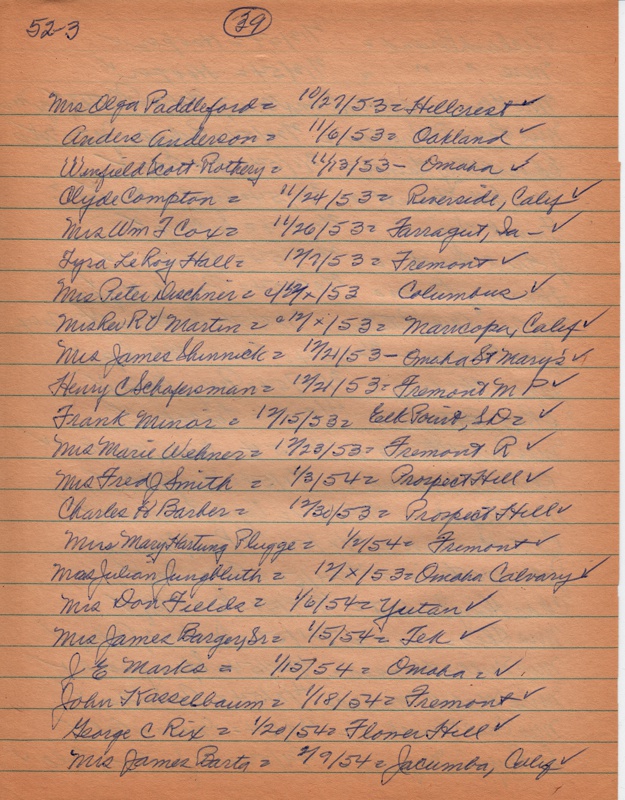 52-3 39
Mrs Olga Paddleford = 10/27/53 = Hillcrest ✓
Anders Anderson = 11/6/53 = Oakland ✓
Winfield Scott Rothery = 11/13/53 - Omaha ✓
Clyde Compton = 11/24/53 = Riverside, Calif ✓
Mrs Wm F Cox = 11/26/53 = Farragut, Ia - ✓
Tyra LeRoy Hall = 12/7/53 = Fremont ✓
Mrs Peter Dischner = c/12/x/53 Columbus ✓
Mrs Rev R V Martin = c12/x/53 = Maricopa, Calif ✓
Mrs James Shinnick = 12/21/53 - Omaha St Mary's ✓
Henry C Schafersman = 12/21/53 = Fremont M P ✓
Frank Minor = 12/15/53 = Elk Point, SD = ✓
Mrs Marie Wehner = 12/23/53 = Fremont R ✓
Mrs Fred J Smith = 1/3/54 = Prospect Hill ✓
Charles H Barber = 12/30/53 = Prospect Hill ✓
Mrs Mary Hartung Plugge = 1/2/54 = Fremont ✓
Mrs Julian Jungbluth = 12/x/53 = Omaha Calvary ✓
Mrs Don Fields = 1/6/54 = Yutan ✓
Mrs James Barger, Sr = 1/5/54 = Tek ✓
J E Marks = 1/15/54 = Omaha = ✓
John Kasselbaum = 1/18/54 = Fremont ✓
George C Rix = 1/20/54 = Flower Hill ✓
Mrs James Barta = 2/9/54 = Jacumba, Calif ✓